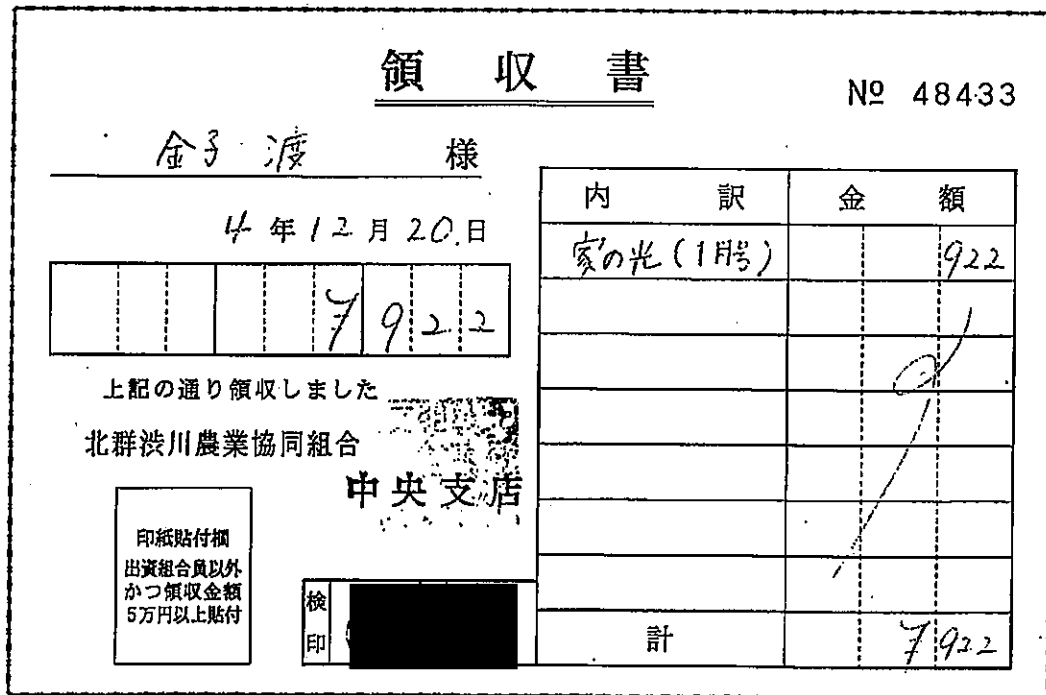 領収書
№ 48433
金子 渡 様
4年12月20日
¥922
上記の通り領収しました
北群渋川農業協同組合
中央支店
印紙貼付欄
出資組合員以外
かつ領収金額
5万円以上貼付
検印
内訳 金額
家の光(1月号) 922
計 ¥922